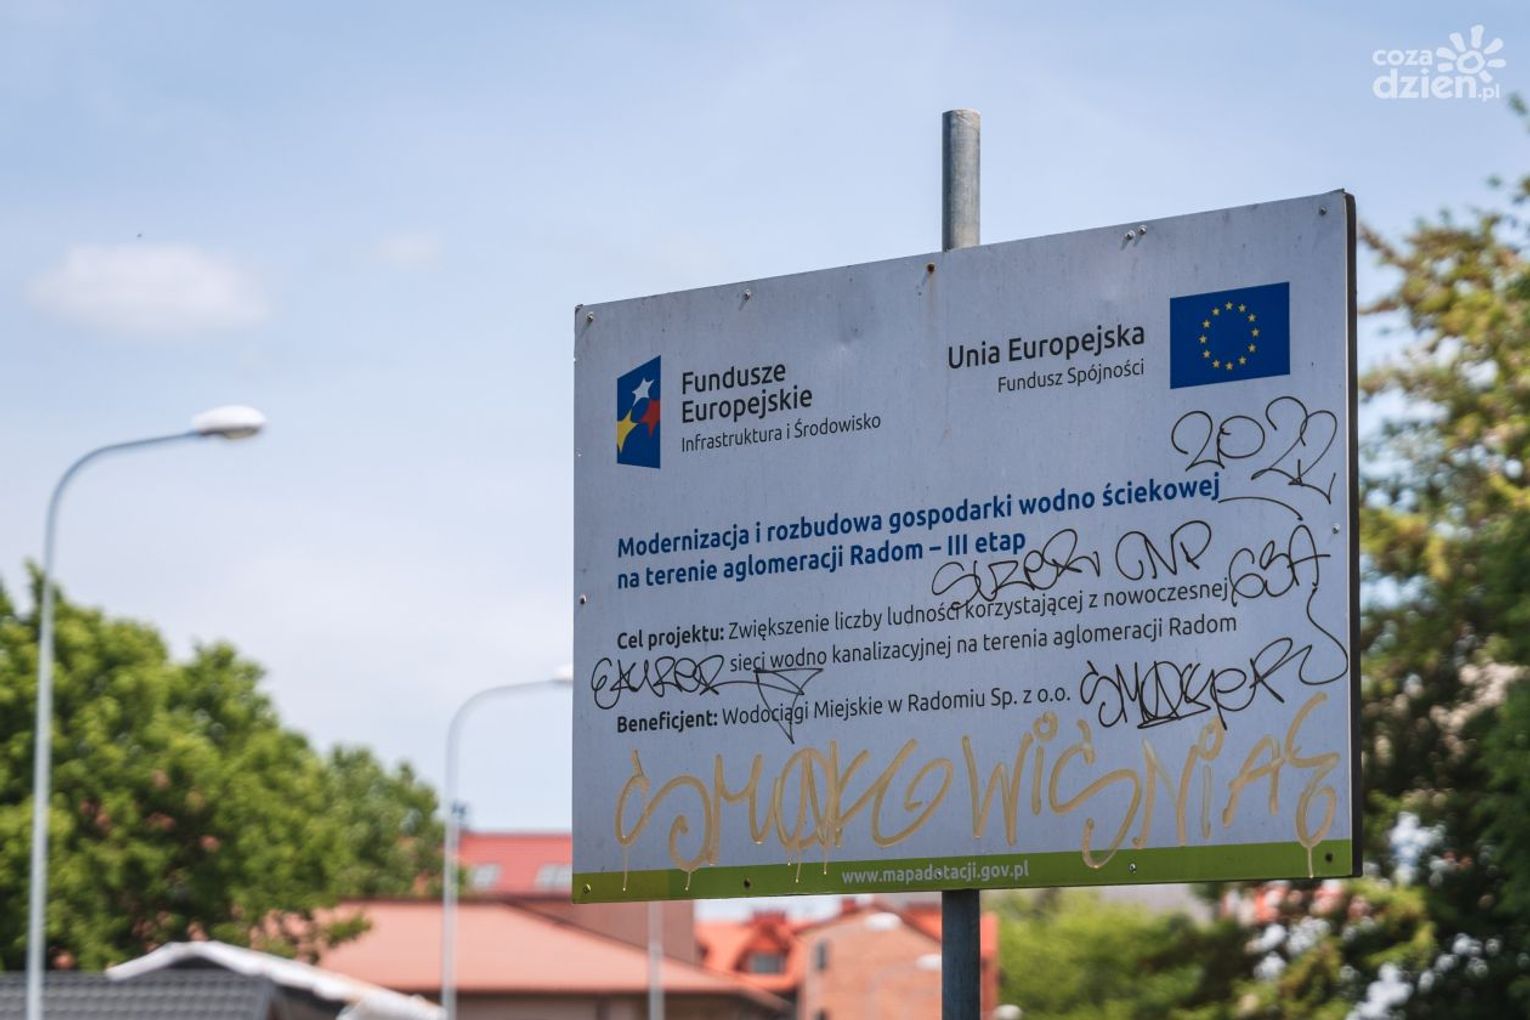 coza
dzień.pl
Fundusze
Europejskie
Infrastruktura i Środowisko
Unia Europejska
Fundusz Spójności
2022
Modernizacja i rozbudowa gospodarki wodno ściekowej
na terenie aglomeracji Radom – III etap
Cel projektu: Zwiększenie liczby ludności korzystającej z nowoczesnej
sieci wodno kanalizacyjnej na terenia aglomeracji Radom
Beneficjent: Wodociągi Miejskie w Radomiu Sp. z o.o.
www.mapadotacji.gov.pl